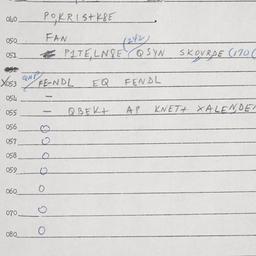 040 PO,KRIS+K8E
050 FAN
051 P1TE,LN8E QSYN SKOVRDE (170(
(242)
X053 QHP FE-NDL EQ FENDL
054 –
055 – QBEK+ AP KNET+ XALENDE
056 O
057 O
058 O
059 O
060 O
070 O
080 O